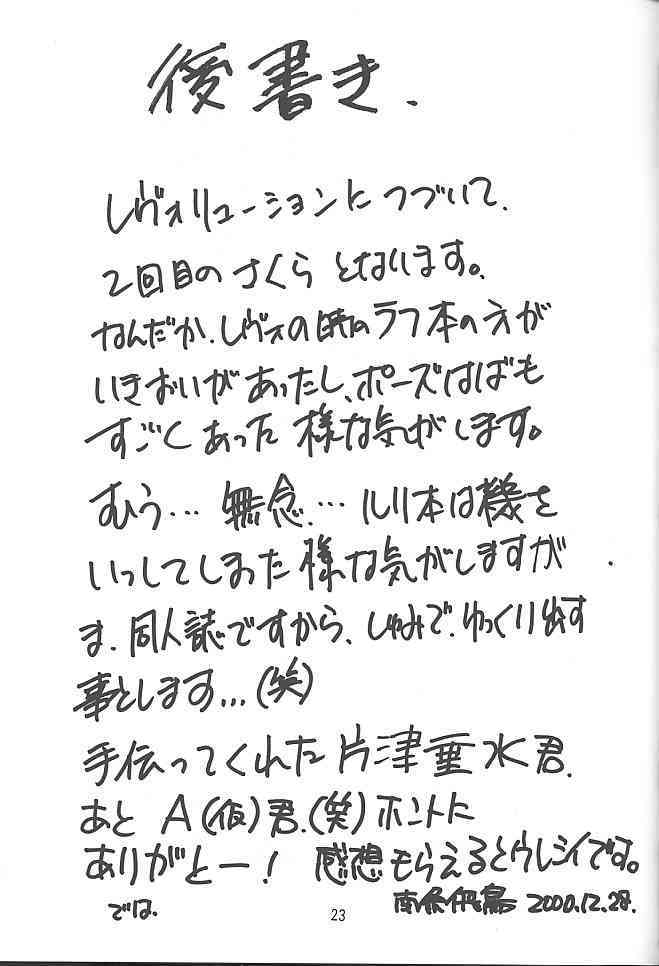 後書き.
レヴォリューションにつづいて.
2回目のさくらとなります。
なんだか、レヴォの時のラフ本のえが
いきおいがあったし、ポーズはばも
すごくあった様な気がします。
むう…無念.…ルリ本は機を
いっしてしまった様な気がしますが
ま、同人誌ですから、しゅみで、ゆっくり出す
事とします...(笑)
手伝ってくれた片津垂水君.
あと A(仮)君.(笑)ホントに
ありがとー! 感想もらえるとウレシイです。
では. 2000.12.28.
23